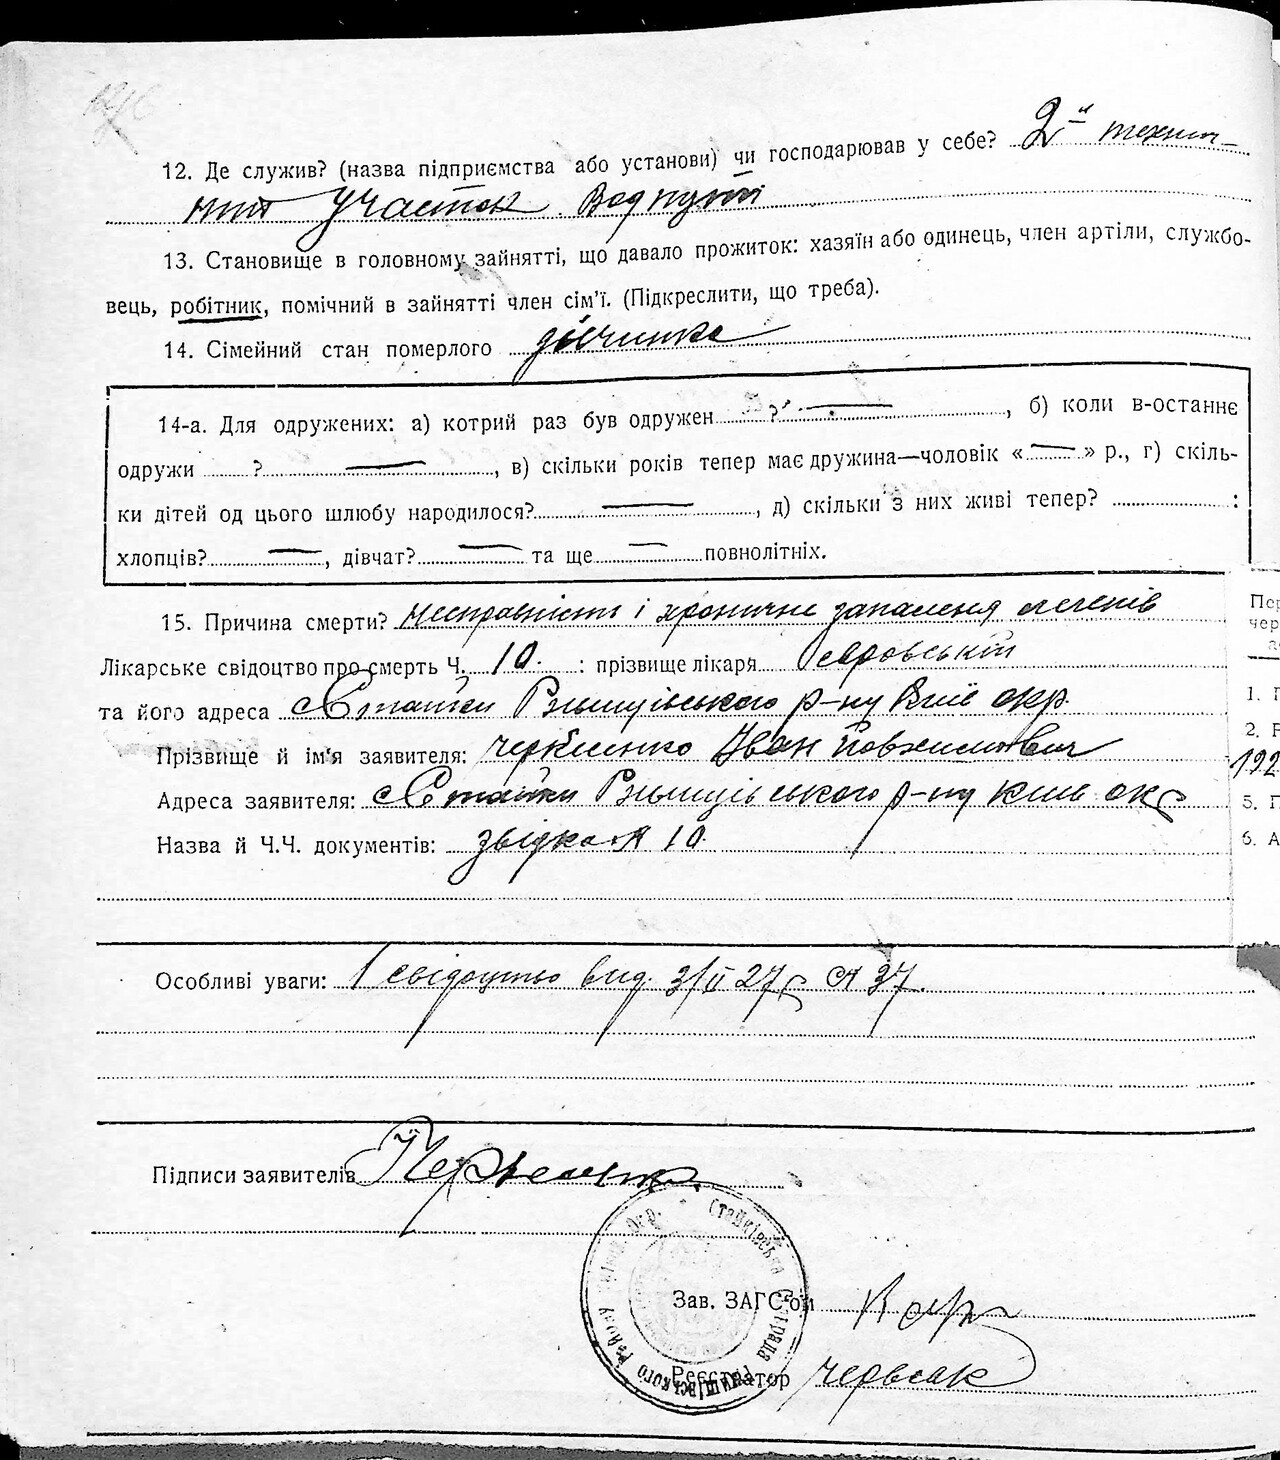 12. Де служив? (назва підприємства або установи) чи господарював у себе? 2й техніч-
ний участок Водпуті
13. Становище в головному зайнятті, що давало прожиток: хазяїн або одинець, член артіли, службо-
вець, робітник, помічний в зайнятті член сім'ї. (Підкреслити, що треба).
14. Сімейний стан померлого дівчинка
14-а. Для одружених: а) котрий раз був одружен ? — , б) коли в-останнє
одружи ? — , в) скільки років тепер має дружина—чоловік « — » р., г) скіль-
ки дітей од цього шлюбу народилося? — , д) скільки з них живі тепер? :
хлопців? — , дівчат? — та ще — повнолітніх.
15. Причина смерти? і хронічне запалення легенів
Лікарське свідоцтво про смерть Ч. 10. : прізвище лікаря
та його адреса Стайки Ржищівського р-ну Київ окр.
Прізвище й ім'я заявителя: Іван
Адреса заявителя: Стайки Ржищівського р-ну Київ окр
Назва й Ч.Ч. документів: звідка № 10.
Особливі уваги: свідоцтво вид. 3/II 27р № 37.
Підписи заявителів
Стайківська Сільрада Ржищівського району Київ. Окр.
Зав. ЗАГС'ом
Реєстратор
Пер
чер
1. П
2.
192
5. П
6. А